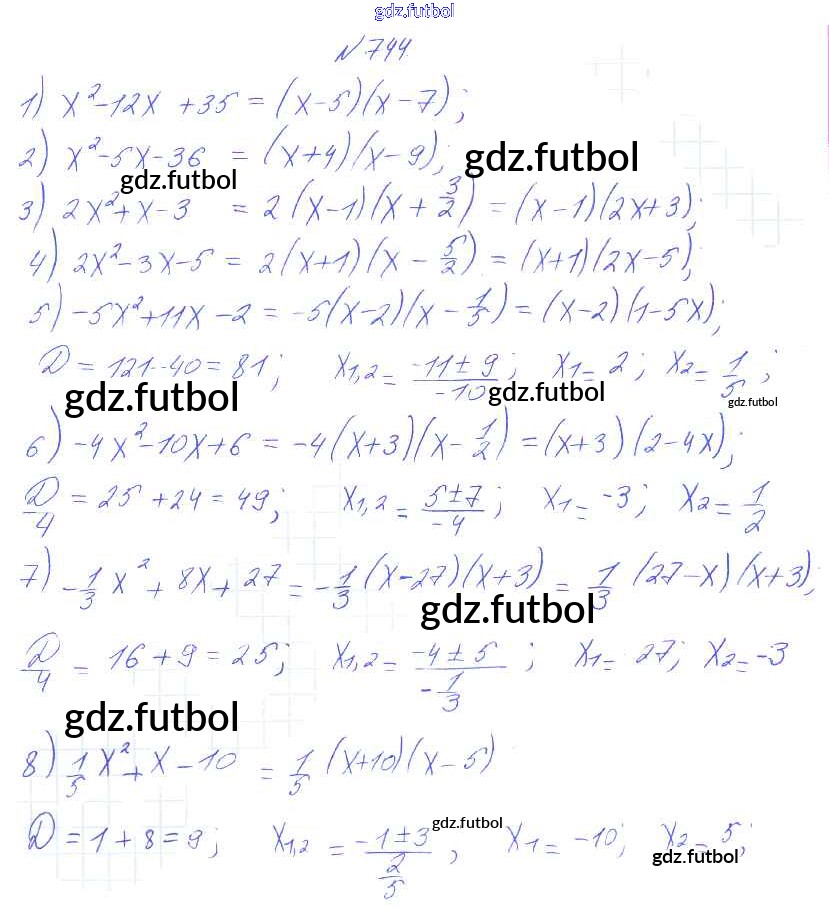 gdz.futbol
№ 744
1) x²-12x +35 = (x-5)(x-7);
2) x²-5x-36 = (x+4)(x-9); gdz.futbol
gdz.futbol
3) 2x²+x-3 = 2(x-1)(x+3/2) = (x-1)(2x+3);
4) 2x²-3x-5 = 2(x+1)(x-5/2) = (x+1)(2x-5);
5) -5x²+11x-2 = -5(x-2)(x-1/5) = (x-2)(1-5x);
D = 121-40 = 81; x1,2 = (-11±9)/(-10); x1 = 2; x2 = 1/5;
gdz.futbol gdz.futbol gdz.futbol
6) -4x²-10x+6 = -4(x+3)(x-1/2) = (x+3)(2-4x);
D/4 = 25+24 = 49; x1,2 = (5±7)/(-4); x1 = -3; x2 = 1/2
7) -1/3x²+8x+27 = -1/3(x-27)(x+3) = 1/3(27-x)(x+3);
gdz.futbol
D/4 = 16+9 = 25; x1,2 = (-4±5)/(-1/3); x1 = 27; x2 = -3
gdz.futbol
8) 1/5x²+x-10 = 1/5(x+10)(x-5)
gdz.futbol
D = 1+8 = 9; x1,2 = (-1±3)/(2/5), x1 = -10; x2 = 5;
gdz.futbol